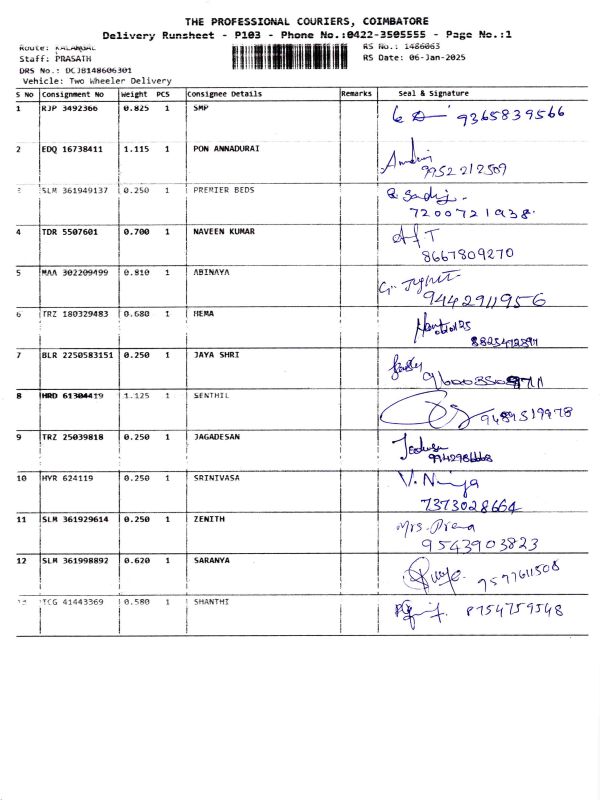 THE PROFESSIONAL COURIERS, COIMBATORE
Delivery Runsheet - P103 - Phone No.:0422-3505555 - Page No.:1
Route: KALANGAL
RS No.: 1486063
Staff: PRASATH
RS Date: 06-Jan-2025
DRS No.: DCJB148606301
Vehicle: Two Wheeler Delivery
S No Consignment No Weight PCS Consignee Details Remarks Seal & Signature
1 RJP 3492366 0.825 1 SMP 9365839566
2 EDQ 16738411 1.115 1 PON ANNADURAI
9952212509
3 SLM 361949137 0.250 1 PREMIER BEDS
7200721938
4 TDR 5507601 0.700 1 NAVEEN KUMAR
8667809270
5 MAA 302209499 0.810 1 ABINAYA
9442911956
6 TRZ 180329483 0.680 1 HEMA
7 BLR 2250583151 0.250 1 JAYA SHRI
8 HRD 61304419 1.125 1 SENTHIL
9489519978
9 TRZ 25039818 0.250 1 JAGADESAN
10 HYR 624119 0.250 1 SRINIVASA
7373028664
11 SLM 361929614 0.250 1 ZENITH
Mrs. Prema
9543903823
12 SLM 361998892 0.620 1 SARANYA
7577611508
13 TCG 41443369 0.580 1 SHANTHI 8754759548